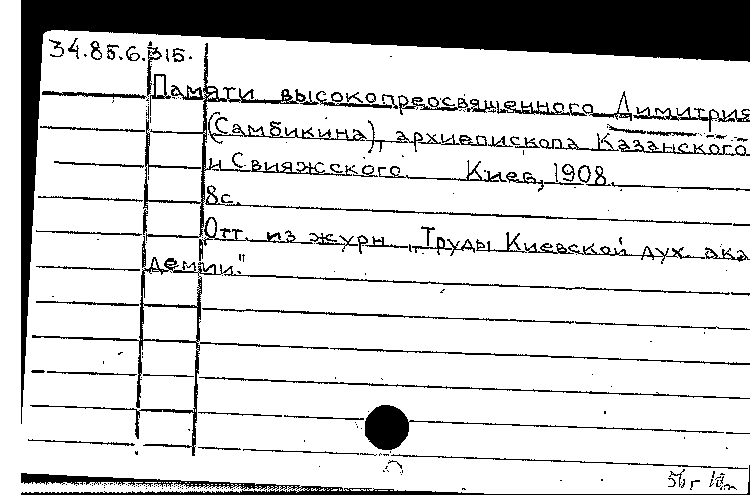 34.85.6.315.
Памяти высокопреосвященного Димитрия
(Самбикина), архиепископа Казанского
и Свияжсского. Киев, 1908.
8с.
Отт. из журн. „Труды Киевской дух. ака
демии."
56г